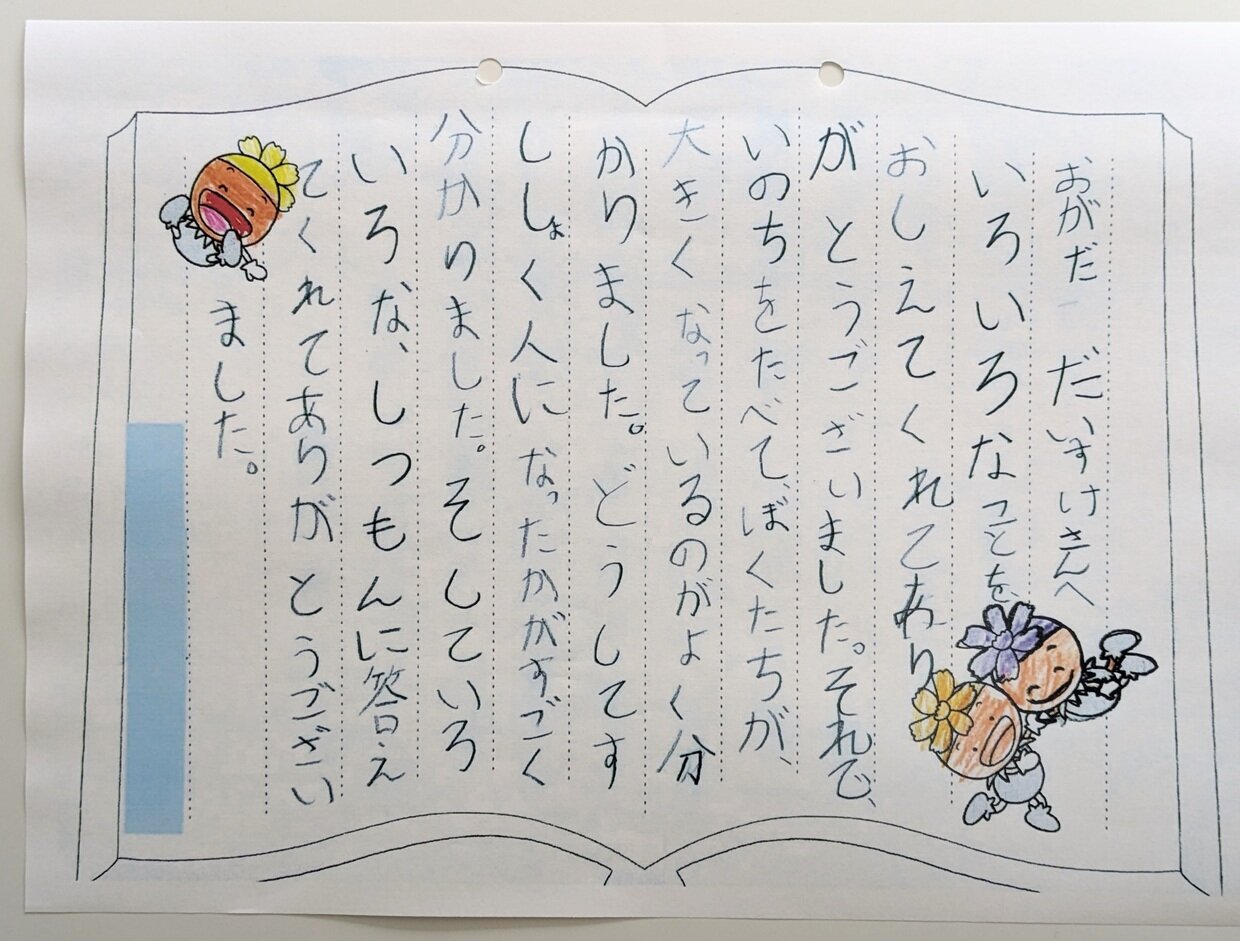 おがだ だいすけさんへ
いろいろなことを
おしえてくれてあり
がとうございました。それで、
いのちをたべて、ぼくたちが、
大きくなっているのがよく分
かりました。どうしてす
ししょく人になったかがすごく
分かりました。そしていろ
いろな、しつもんに答え
てくれてありがとうござい
ました。